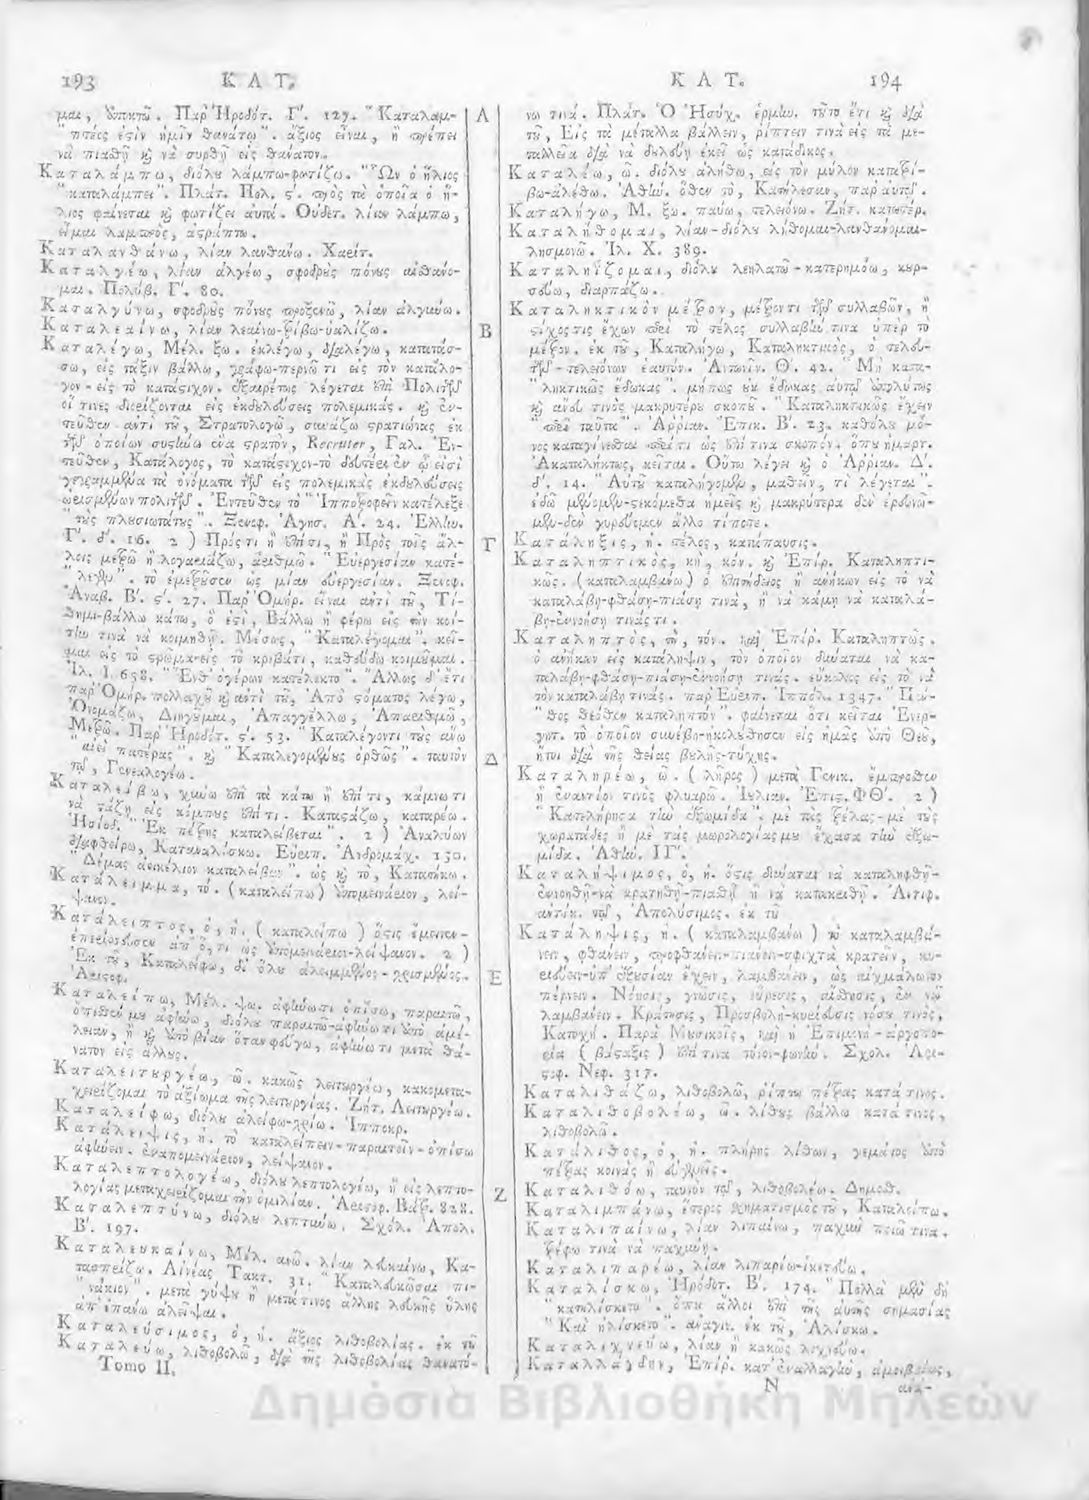 193 Κ Α Τ.
μαι, ὑποπτῶ. Παρ' Ἡροδότ. Γ'. 127. "Καταλαμ-
"πτέος ἐστὶν ἡμῖν θανάτῳ". ἄξιος εἶναι, ἢ πρέπει
νὰ πιασθῇ καὶ νὰ συρθῇ εἰς θάνατον.
Καταλάμπω, διόλου λάμπω-φωτίζω. "Ὧν ὁ ἥλιος
"καταλάμπει". Πλάτ. Πολ. ς'. πρὸς τὰ ὁποῖα ὁ ἥ-
λιος φαίνεται καὶ φωτίζει αὐτά. Οὐδετ. λίαν λάμπω,
εἶμαι λαμπρὸς, ἀστράπτω.
Καταλανθάνω, λίαν λανθάνω. Χαρίτ.
Καταλγέω, λίαν ἀλγέω, σφοδροὺς πόνους αἰσθάνο-
μαι. Πολύβ. Γ'. 80.
Καταλγύνω, σφοδροὺς πόνους προξενῶ, λίαν ἀλγύνω.
Καταλεαίνω, λίαν λεαίνω-τρίβω-ὑαλίζω.
Καταλέγω, Μέλ. ξω. ἐκλέγω, διαλέγω, κατατάσ-
σω, εἰς τάξιν βάλλω, γράφω-περνῶ τι εἰς τὸν κατάλο-
γον-εἰς τὸ κατάστιχον. ἐξαιρέτως λέγεται ἐπὶ Πολιτῶν
οἵ τινες διορίζονται εἰς ἐκδουλεύσεις πολεμικάς. καὶ ἐν-
τεῦθεν ἀντὶ τοῦ, Στρατολογῶ, συνάζω στρατιώτας ἐκ
τῶν ὁποίων συστήνω ἕνα στρατὸν, Recruter, Γαλ. Ἐν-
τεῦθεν, Κατάλογος, τὸ κατάστιχον-τὸ δευτέρι ἐν ᾧ εἰσὶ
γεγραμμένα τὰ ὀνόματα τῶν εἰς πολεμικὰς ἐκδουλεύσεις
ὡρισμένων πολιτῶν. Ἐντεῦθεν τὸ "Ἱπποτροφεῖν κατέλεξε
"τοὺς πλουσιωτάτους". Ξενοφ. Ἀγησ. Α'. 24. Ἑλλην.
Γ'. δ'. 16. 2 ) Πρός τι ἢ ἐπί τι, ἢ Πρὸς τοῖς ἄλ-
λοις μετρῶ ἢ λογαριάζω, ἀριθμῶ. "Εὐεργεσίαν κατέ-
"λεγεν". τὸ ἐμέτρησεν ὡς μίαν εὐεργεσίαν. Ξενοφ.
Ἀναβ. Β'. ς'. 27. Παρ' Ὁμήρ. εἶναι ἀντὶ τοῦ, Τί-
θημι-βάλλω κάτω, ὅ ἐστι, Βάλλω ἢ φέρω εἰς τὴν κοί-
την τινὰ νὰ κοιμηθῇ. Μέσως, "Καταλέγομαι". κεῖ-
μαι εἰς τὸ στρῶμα-εἰς τὸ κρεβάτι, καθεύδω-κοιμοῦμαι.
Ἰλ. Ι. 658. "Ἔνθ' ὁ γέρων κατέλεκτο". Ἄλλως δ' ἔτι
παρ' Ὁμήρ. πολλαχοῦ καὶ ἀντὶ τοῦ, Ἀπὸ στόματος λέγω,
Ὀνομάζω, Διηγοῦμαι, Ἀπαγγέλλω, Ἀπαριθμῶ,
Μετρῶ. Παρ' Ἡροδότ. ς'. 53. "Καταλέγοντι τοὺς ἄνω
"αἰεὶ πατέρας". καὶ "Καταλεγομένους ὀρθῶς". ταυτὸν
τῷ, Γενεαλογέω.
Καταλείβω, χύνω ἐπὶ τὰ κάτω ἢ ἐπί τι, κάμνω τι
νὰ στάζῃ εἰς κόμπους ἐπί τι. Καταστάζω, καταρέω.
Ἡσίοδ. "Ἐκ πέτρης καταλείβεται". 2 ) Ἀναλύων
διαφθείρω, Καταναλίσκω. Εὐριπ. Ἀνδρομάχ. 130.
"Δέμας ἀεικέλιον καταλείβειν". ὡς καὶ τὸ, Κατατήκω.
Κατάλειμμα, τό. (καταλείπω) ὑπομεινάριον, λεί-
ψανον.
Κατάλειπτος, ὁ, ἡ. ( καταλείπω ) ὅστις ἔμεινεν-
ἐπερίσσευσεν ἀπ' ὅ, τι ὡς ὑπομεινάριον-λείψανον. 2 )
Ἐκ τοῦ, Καταλείφω, δι' ὅλου ἀλειμμένος-χρισμένος.
Ἀριστοφ.
Καταλείπω, Μέλ. ψω. ἀφήνω τι ὀπίσω, παραιτῶ,
ὄπισθέν μου ἀφήνω, διόλου παραιτῶ-ἀφήνω τι ὑπὸ ἀμέ-
λειαν, ἢ καὶ ὑπὸ βίαν ὅταν φεύγω, ἀφήνω τι μετὰ θά-
νατον εἰς ἄλλους.
Καταλειτουργέω, ῶ. κακῶς λειτουργέω, κακομετα-
χειρίζομαι τὸ ἀξίωμα τῆς λειτουργίας. Ζήτ. Λειτουργέω.
Καταλείφω, διόλου ἀλείφω-χρίω. Ἱπποκρ.
Κατάλειψις, ἡ. τὸ καταλείπειν-παραιτεῖν-ὀπίσω
ἀφήνειν. ἐναπομεινάριον, λείψανον.
Καταλεπτολογέω, διόλου λεπτολογέω, ἢ εἰς λεπτο-
λογίας μεταχειρίζομαι τὴν ὁμιλίαν. Ἀριστοφ. Βάτρ. 828.
Καταλεπτύνω, διόλου λεπτύνω. Σχόλ. Ἀπολ.
Β'. 197.
Καταλευκαίνω, Μέλ. ανῶ. λίαν λευκαίνω, Κα-
τασπρίζω. Αἰνέας Τακτ. 31. "Καταλευκῶσαι πι-
"νάκιον". μετὰ γύψου ἢ μετά τινος ἄλλης λευκῆς ὕλης
ἀπ' ἐπάνω ἀλεῖψαι.
Καταλεύσιμος, ὁ, ἡ. ἄξιος λιθοβολίας. ἐκ τοῦ
Καταλεύω, λιθοβολῶ, διὰ τῆς λιθοβολίας θανατό-
Tomo II.
Α
Β
Γ
Δ
Ε
Ζ
Κ Α Τ. 194
νω τινά. Πλάτ. Ὁ Ἡσύχ. ἑρμην. τοῦτο ἔτι καὶ διὰ
τοῦ, Εἰς τὰ μέταλλα βάλλειν, ρίπτειν τινὰ εἰς τὰ με-
ταλλεῖα διὰ νὰ δουλεύῃ ἐκεῖ ὡς κατάδικος.
Καταλέω, ῶ. διόλου ἀλήθω, εἰς τὸν μύλον κατατρί-
βω-ἀλέθω. Ἀθήν. ὅθεν τὸ, Κατήλεσαν, παρ' αὐτῷ.
Καταλήγω, Μ. ξω. παύω, τελειόνω. Ζήτ. κατωτέρ.
Καταλήθομαι, λίαν-διόλου λήθομαι-λανθάνομαι-
λησμονῶ. Ἰλ. Χ. 389.
Καταληΐζομαι, διόλου λεηλατῶ-κατερημόω, κουρ-
σεύω, διαρπάζω.
Καταληκτικὸν μέτρον, μέτρον τι τῶν συλλαβῶν, ἢ
στίχος τις ἔχων περὶ τὸ τέλος συλλαβήν τινα ὑπὲρ τὸ
μέτρον. ἐκ τοῦ, Καταλήγω, Καταληκτικὸς, ὁ τελευ-
τῶν-τελειόνων ἑαυτόν. Ἀντωνῖν. Θ'. 42. "Μὴ κατα-
"ληκτικῶς ἔδωκας". μήπως οὐκ ἔδωκας αὐτῷ ἁπλούτως
καὶ ἄνευ τινὸς μακρυτέρου σκοποῦ. "Καταληκτικῶς ἔχειν
"περὶ ταῦτα". Ἀρριαν. Ἐπικ. Β'. 23. καθόλου μό-
νος καταγίνεσθαι περί τι ὡς ἐπί τινα σκοπόν. ὅπου ἡμαρτ.
Ἀκαταλήκτως, κεῖται. Οὕτω λέγει καὶ ὁ Ἀρριαν. Δ'.
δ'. 14. "Αὐτοῦ καταλήγομεν, μαθεῖν, τί λέγεται".
ἐδῶ μένομεν-στεκόμεθα ἡμεῖς καὶ μακρύτερα δὲν ἐρευνῶ-
μεν-δὲν γυρεύομεν ἄλλο τίποτε.
Κατάληξις, ἡ. τέλος, κατάπαυσις.
Καταληπτικὸς, κὴ, κόν. καὶ Ἐπίρ. Καταληπτι-
κῶς. (καταλαμβάνω) ὁ ἐπιτήδειος ἢ ἀνήκων εἰς τὸ νὰ
καταλάβῃ-φθάσῃ-πιάσῃ τινὰ, ἢ νὰ κάμῃ νὰ καταλά-
βῃ-ἐννοήσῃ τινάς τι.
Καταληπτὸς, τὴ, τόν. καὶ Ἐπίρ. Καταληπτῶς.
ὁ ἀνήκων εἰς κατάληψιν, τὸν ὁποῖον δύναται νὰ κα-
ταλάβῃ-φθάσῃ-πιάσῃ-ἐννοήσῃ τινάς. εὔκολος εἰς τὸ νὰ
τὸν καταλάβῃ τινάς. παρ' Εὐριπ. Ἱππόλ. 1347. "Πέν-
"θος θεόθεν καταληπτόν". φαίνεται ὅτι κεῖται Ἐνερ-
γητ. τὸ ὁποῖον συνέβη-ἠκολούθησεν εἰς ἡμᾶς ὑπὸ Θεοῦ,
ἤτοι διὰ τῆς θείας βουλῆς-τύχης.
Καταληρέω, ῶ. ( λῆρος ) μετὰ Γενικ. ἔμπροσθεν
ἢ ἐναντίον τινὸς φλυαρῶ. Ἰουλιαν. Ἐπιστ. ΦΘ'. 2 )
"Κατελήρησα τὴν ἐξωμίδα". μὲ ταῖς τρέλαις-μὲ τοὺς
χωρατάδες ἢ μὲ τὰς μωρολογίας μου ἔχασα τὴν ἐξω-
μίδα. Ἀθήν. ΙΓ'.
Καταλήψιμος, ὁ, ἡ. ὅστις δύναται νὰ καταληφθῇ-
ἐννοηθῇ-νὰ κρατηθῇ-πιασθῇ ἢ νὰ κατακριθῇ. Ἀντιφ.
ἀντίκ. τῷ, Ἀπολύσιμος. ἐκ τοῦ
Κατάληψις, ἡ. ( καταλαμβάνω ) τὸ καταλαμβά-
νειν, φθάνειν, προφθάνειν-πιάνειν-σφιχτὰ κρατεῖν, κυ-
ριεύειν-ὑπ' ἐξουσίαν ἔχειν, λαμβάνειν, ὡς αἰχμάλωτον
πέρνειν. Νόησις, γνῶσις, εὕρεσις, αἴσθησις, ἐν νῷ
λαμβάνειν. Κράτησις, Προσβολὴ-κυρίευσις νόσου τινὸς,
Κατοχή. Παρὰ Μουσικοῖς, καὶ ἡ Ἐπιμονὴ-ἀργοπο-
ρία ( βάσταξις ) ἐπί τινα τόνον-φωνήν. Σχολ. Ἀρι-
στοφ. Νεφ. 317.
Καταλιθάζω, λιθοβολῶ, ῥίπτω πέτρας κατά τινος.
Καταλιθοβολέω, ῶ. λίθους βάλλω κατά τινος,
λιθοβολῶ.
Κατάλιθος, ὁ, ἡ. πλήρης λίθων, γεμάτος ὑπὸ
πέτρας κοινὰς ἢ εὐχρείς.
Καταλιθόω, ταυτὸν τῷ, λιθοβολέω. Δημοσθ.
Καταλιμπάνω, ἕτερος σχηματισμὸς τοῦ, Καταλείπω.
Καταλιπαίνω, λίαν λιπαίνω, παχὺν ποιῶ τινα.
τρέφω τινὰ νὰ παχύνῃ.
Καταλιπαρέω, λίαν λιπαρέω-ἱκετεύω.
Καταλίσκω, Ἡρόδοτ. Β'. 174. "Πολλὰ μὲν δὴ
"κατηλίσκετο". ὅπου ἄλλοι ἐπὶ τῆς αὐτῆς σημασίας
"Καὶ ἡλίσκετο". ἀνάγιν. ἐκ τοῦ, Ἁλίσκω.
Καταλιχνεύω, λίαν ἢ κακῶς λιχνεύω.
Καταλλάγδην, Ἐπίρ. κατ' ἐναλλαγὴν, ἀμοιβαίως,
N ἀνα-
Δημόσια Βιβλιοθήκη Μηλεών